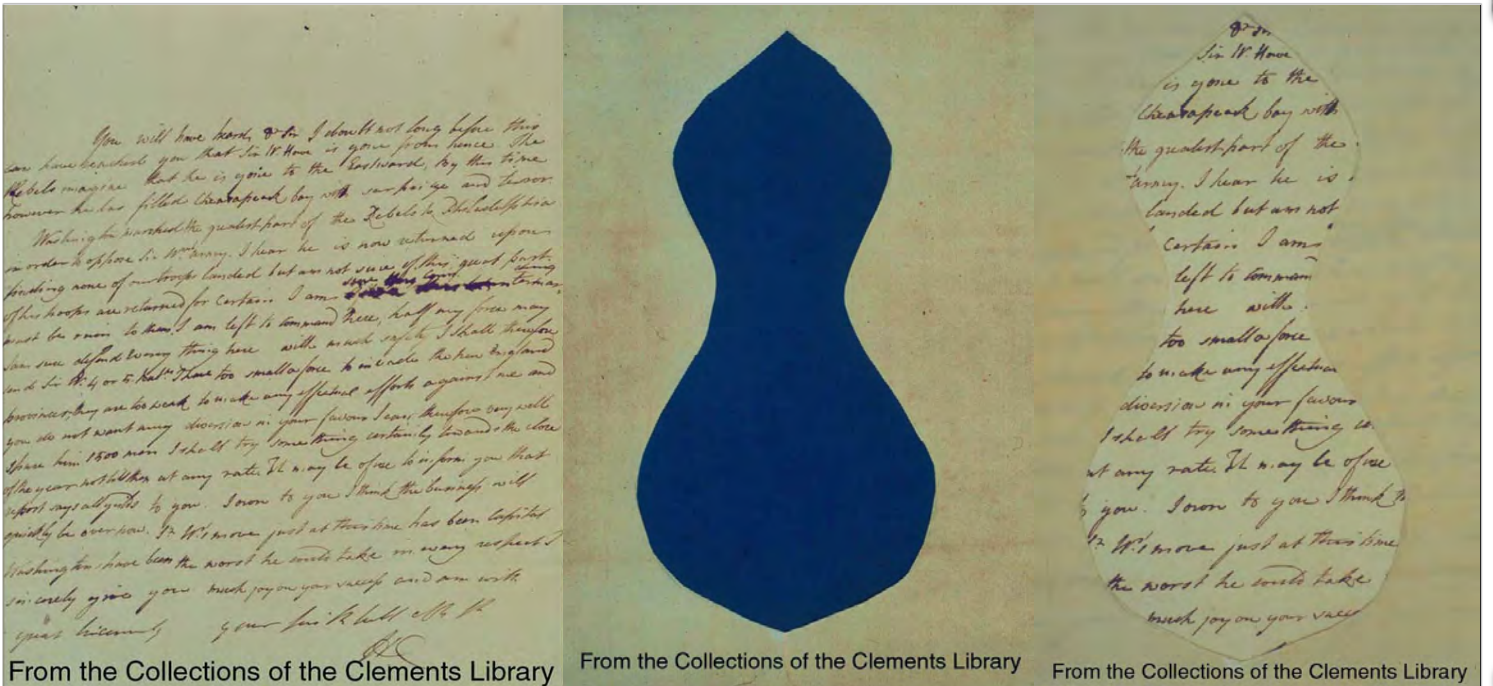 You will have heard, Dr Sir I doubt not long before this
can have reached you that Sir W. Howe is gone from hence. The
Rebels imagine that he is gone to the Eastward, by this time
however he has filled Chesapeak bay with surprize and terror.
Washington marched the greatest part of the Rebels to Philadelphia
in order to oppose Sir Wms army. I hear he is now returned upon
finding none of our troops landed but am not sure of this, great part
of his troops are returned for certain I am sure this
must be ruin to them. I am left to command here, half my force may
I am sure defend every thing here with much safety I shall therefore
send Sir W. 4 or 5 Batns I have too small a force to invade the New England
provinces, they are too weak to make any effectual efforts against me and
you do not want any diversion in your favour I can, therefore very well
spare him 1500 men I shall try something certainly towards the close
of the year not till then at any rate. It may be of use to inform you that
report says all yields to you. I own to you I think the business will
quickly be over now. Sr W's move just at this time has been capital
Washingtons have been the worst he could take in every respect I
sincerely give you much joy on your success and am with
great Sincerity your
HC
From the Collections of the Clements Library
From the Collections of the Clements Library
Dr Sir
Sir W. Howe
is gone to the
Chesapeak bay with
the greatest part of the
army. I hear he is
landed but am not
certain I am
left to command
here with
too small a force
to make any effectual
diversion in your favour
I shall try something
at any rate. It may be of use
to you. I own to you I think
Sr W's move just at this time
the worst he could take
much joy on your
From the Collections of the Clements Library